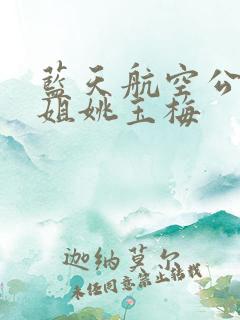 藍天航空公
姐姚玉梅
迦納莫尔
未经同意禁止转载